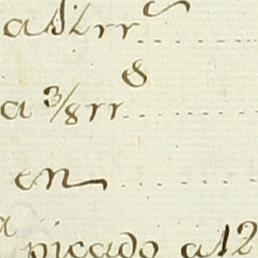 a 12 rr
a 3/8 rr s
en
picado a 12